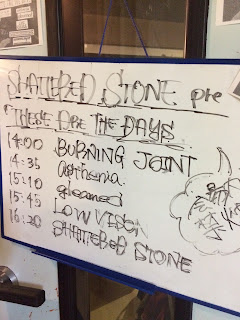 SHATTERED STONE pre
"THESE ARE THE DAYS
14:00 BURNING JOINT
14:35 asthenia
15:10 gleamed
15:45 LOW VISION
16:20 SHATTERED STONE